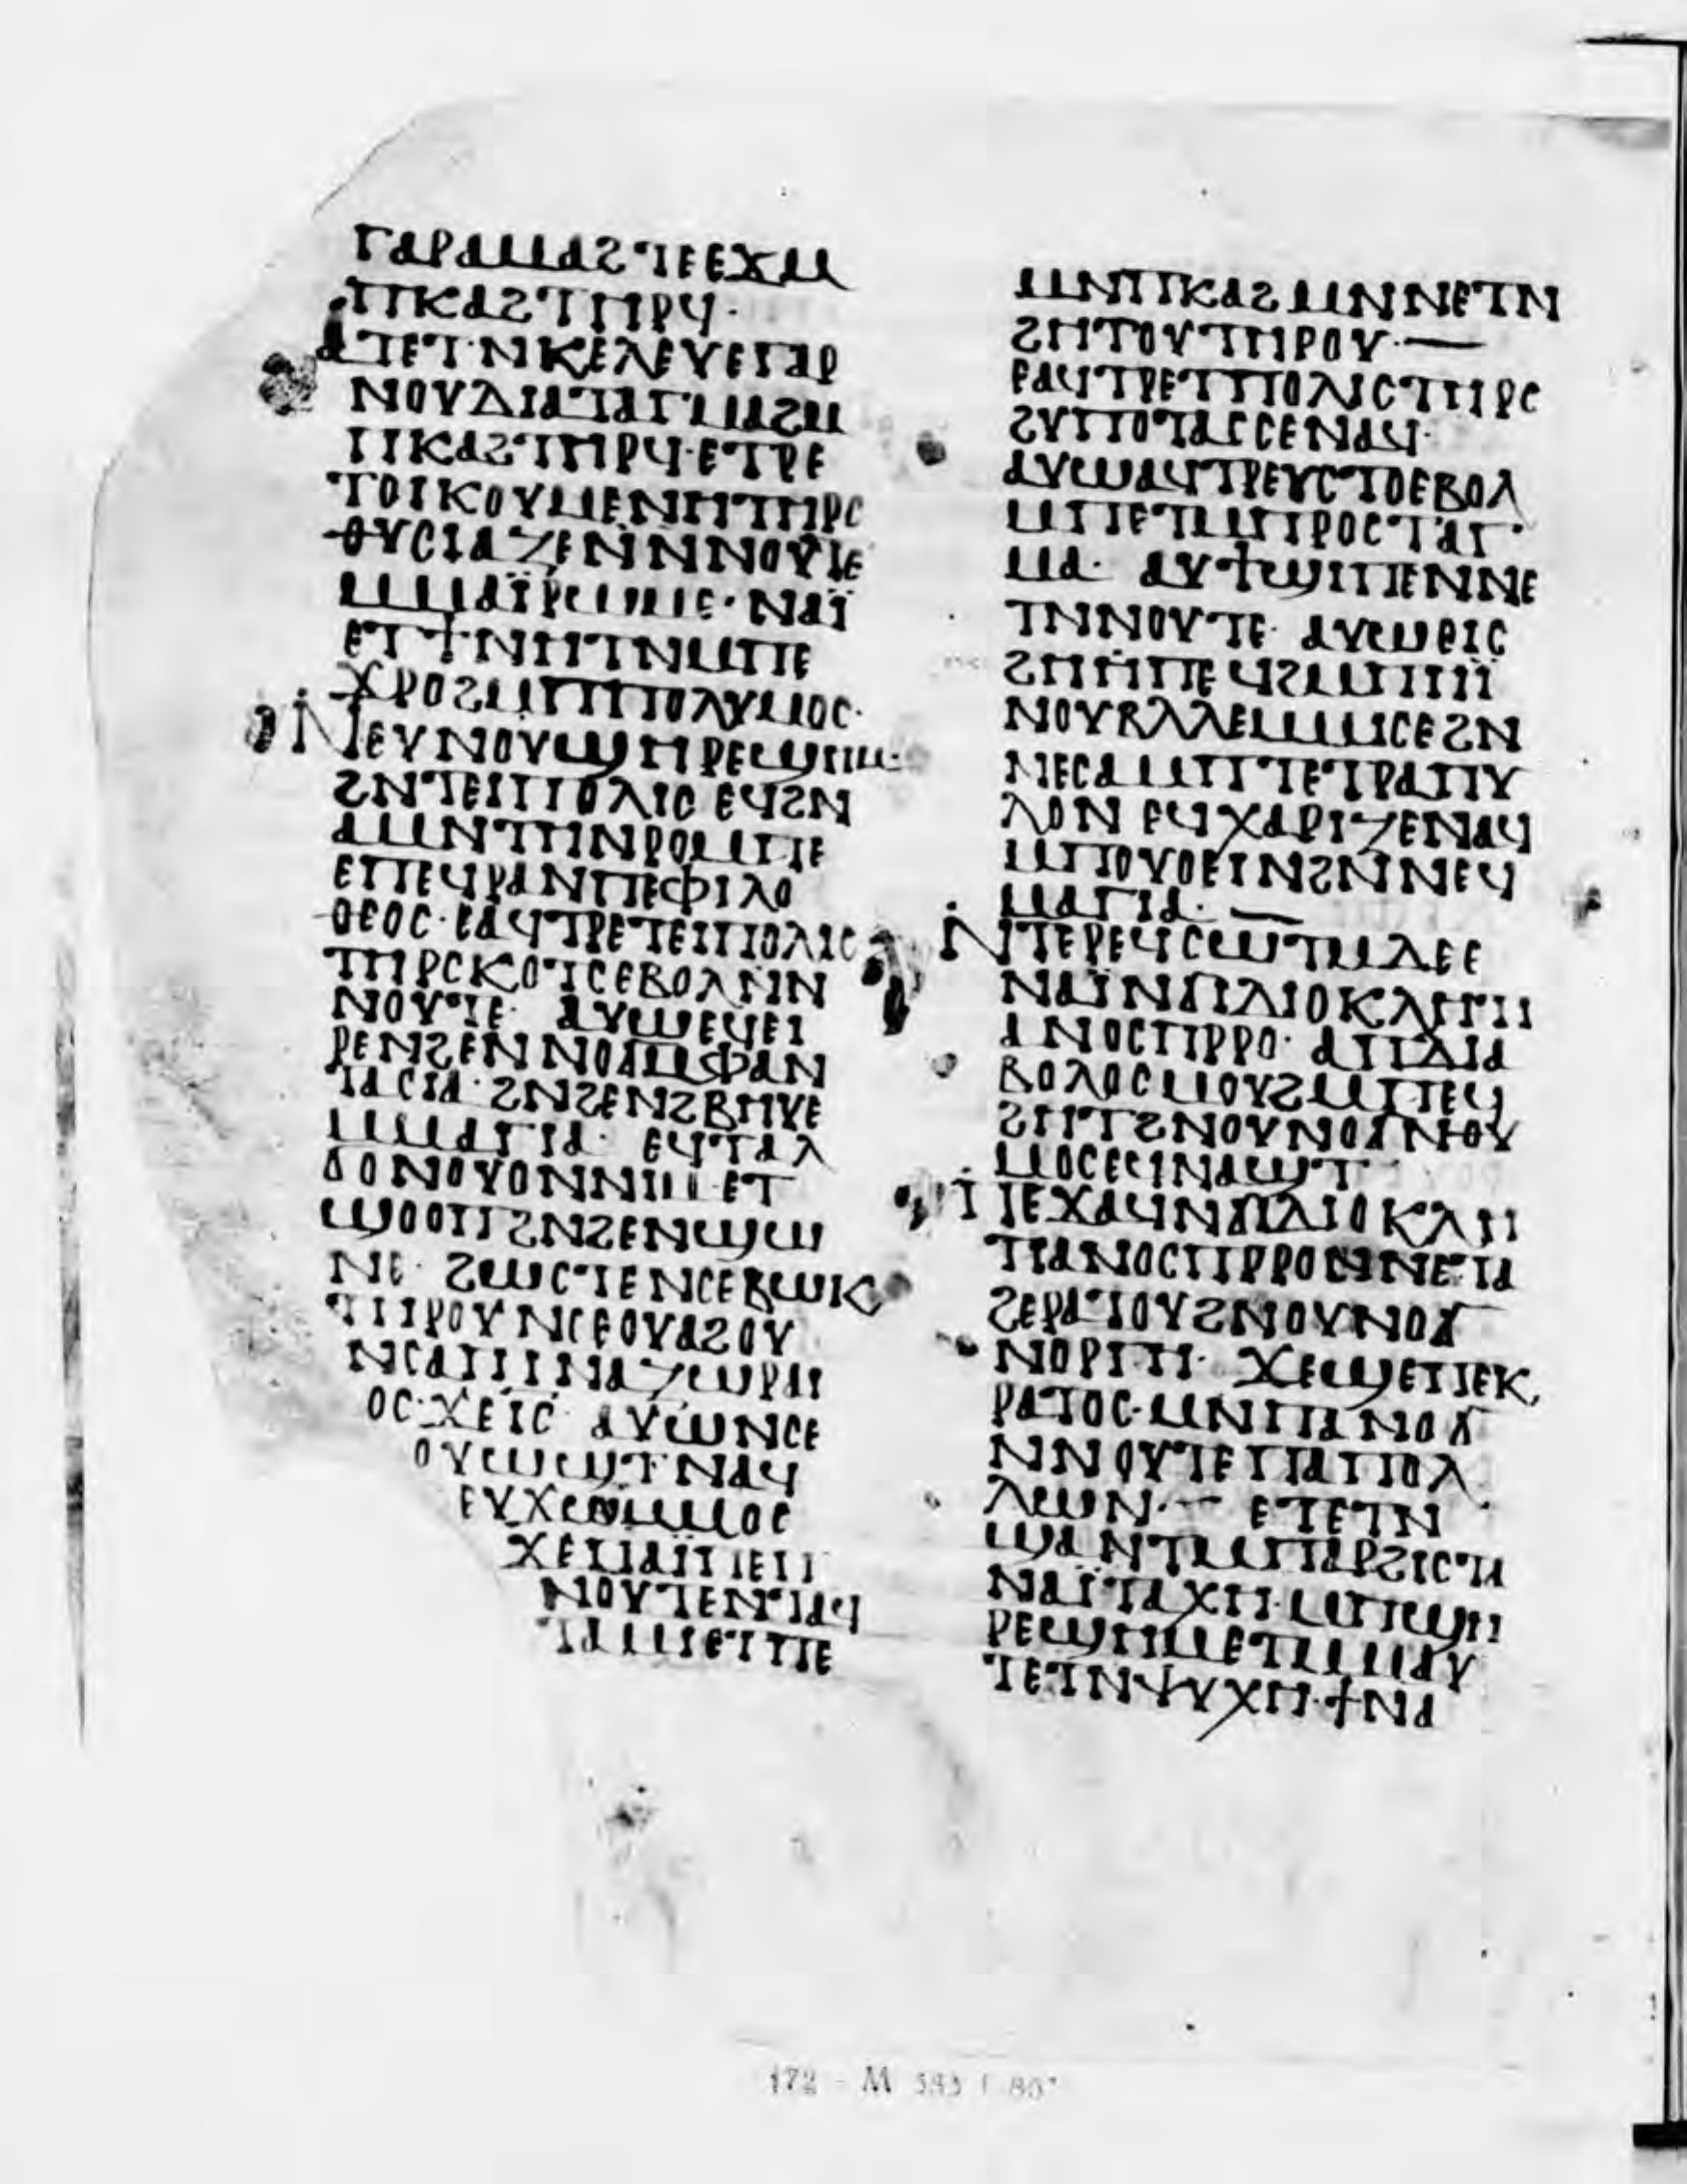 ⲅⲁⲣⲁⲙⲙⲁϩⲧⲉⲉϫⲙ
ⲡⲕⲁϩⲧⲏⲣϥ·
ⲁⲧⲉⲧⲛⲕⲉⲗⲉⲩⲉⲅⲁⲣ
ⲛⲟⲩⲇⲓⲁⲧⲁⲅⲙⲁϩⲙ
ⲡⲕⲁϩⲧⲏⲣϥ·ⲉⲧⲣⲉ
ⲧⲟⲓⲕⲟⲩⲙⲉⲛⲏⲧⲏⲣⲥ
ⲑⲩⲥⲓⲁⲍⲉⲛⲛⲛⲟⲩⲧⲉ
ⲙⲙⲁⲓ̈ⲣⲱⲙⲉ·ⲛⲁⲓ̈
ⲉⲧϯⲛⲏⲧⲛⲙⲡⲉ
ϫⲣⲟϩⲙⲡⲡⲟⲗⲩⲙⲟⲥ·
ⲛⲉⲩⲛⲟⲩϣⲏⲣⲉϣⲏⲙ·
ϩⲛⲧⲉⲓⲡⲟⲗⲓⲥ ⲉϥϩⲛ
ⲁⲙⲛⲧⲏⲛⲣⲟⲙⲡⲉ
ⲉⲡⲉϥⲣⲁⲛⲡⲉⲫⲓⲗⲟ
ⲑⲉⲟⲥ·ⲉⲁϥⲧⲣⲉⲧⲉⲓⲡⲟⲗⲓⲥ
ⲧⲏⲣⲥⲕⲟⲧⲥⲉⲃⲟⲗⲛⲛ
ⲛⲟⲩⲧⲉ· ⲁⲩⲱⲉϥⲉⲓ
ⲣⲉⲛϩⲉⲛⲛⲟϭⲙⲫⲁⲛ
ⲧⲁⲥⲓⲁ·ϩⲛϩⲉⲛϩⲃⲏⲩⲉ
ⲙⲙⲁⲅⲓⲁ· ⲉϥⲧⲁⲗ
ϭⲟⲛⲟⲩⲟⲛⲛⲓⲙ·ⲉⲧ
ϣⲟⲟⲡϩⲛϩⲉⲛϣⲱ
ⲛⲉ· ϩⲱⲥⲧⲉⲛⲥⲉⲃⲱⲕ
ⲧⲏⲣⲟⲩⲛⲥⲉⲟⲩⲁϩⲟⲩ
ⲛⲥⲁⲡⲛⲁⲍⲱⲣⲁⲓ
ⲟⲥ·ϫⲉⲓⲥ· ⲁⲩⲱⲛⲥⲉ
ⲟⲩⲱϣⲧⲛⲁϥ
ⲉⲩϫⲱⲙⲙⲟⲥ
ϫⲉⲡⲁⲓ̈ⲡⲉⲡ
ⲛⲟⲩⲧⲉⲛⲧⲁϥ
ⲧⲁⲙⲓⲉⲧⲡⲉ
ⲙⲛⲡⲕⲁϩⲙⲛⲛⲉⲧⲛ
ϩⲏⲧⲟⲩⲧⲏⲣⲟⲩ·—
ⲉⲁϥⲧⲣⲉⲧⲡⲟⲗⲓⲥⲧⲏⲣⲥ
ϩⲩⲡⲟⲧⲁⲥⲥⲉⲛⲁϥ·
ⲁⲩⲱⲁϥⲧⲣⲉⲩⲥⲧⲟⲉⲃⲟⲗ
ⲙⲡⲉⲧⲙⲡⲣⲟⲥⲧⲁⲅ
ⲙⲁ· ⲁⲩϯϣⲓⲡⲉⲛⲛⲉ
ⲧⲛⲛⲟⲩⲧⲉ· ⲁⲩⲱⲉⲓⲥ
ϩⲏⲏⲧⲉϥϩⲙⲡⲏⲓ̈
ⲛⲟⲩⲃⲗⲗⲉⲙⲙⲓⲥⲉϩⲛ
ⲛⲉⲥⲁⲙⲡⲧⲉⲧⲣⲁⲡⲩ
ⲗⲟⲛ ⲉϥⲭⲁⲣⲓⲍⲉⲛⲁϥ
ⲙⲡⲟⲩⲟⲉⲓⲛϩⲛⲛⲉϥ
ⲙⲁⲅⲓⲁ· —
ⲛⲧⲉⲣⲉϥⲥⲱⲧⲙⲇⲉⲉ
ⲛⲁⲓ̈ⲛϭⲓⲇⲓⲟⲕⲗⲏⲧⲓ
ⲁⲛⲟⲥⲡⲣⲣⲟ· ⲁⲡⲇⲓⲁ
ⲃⲟⲗⲟⲥⲙⲟⲩϩⲙⲡⲉϥ
ϩⲏⲧϩⲛⲟⲩⲛⲟϭⲛⲑⲩ
ⲙⲟⲥⲉϥⲛⲁϣⲧ·
ⲡⲉϫⲁϥⲛϭⲓⲇⲓⲟⲕⲗⲏ
ⲧⲓⲁⲛⲟⲥⲡⲣⲣⲟⲛⲛⲉⲧⲁ
ϩⲉⲣⲁⲧⲟⲩϩⲛⲟⲩⲛⲟϭ
ⲛⲟⲣⲅⲏ· ϫⲉϣⲉⲡⲉⲕ
ⲣⲁⲧⲟⲥ·ⲙⲛⲡⲁⲛⲟϭ
ⲛⲛⲟⲩⲧⲉⲡⲁⲡⲟⲗ
ⲗⲱⲛ·— ⲉⲧⲉⲧⲛ
ϣⲁⲛⲧⲙⲡⲁⲣϩⲓⲥⲧⲁ
ⲛⲁⲓ̈ⲧⲁⲭⲏ·ⲙⲡϣⲏ
ⲣⲉϣⲏⲙⲉⲧⲙⲙⲁⲩ
ⲧⲉⲧⲛⲯⲩⲭⲏ·ϯⲛⲁ